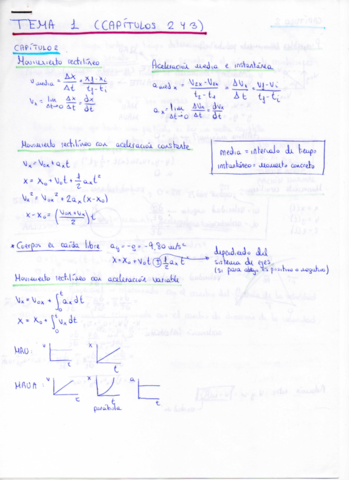 TEMA 1 (CAPÍTULOS 2 Y 3)
CAPÍTULO 2
Movimiento rectilíneo
v media = Δx/Δt = xf - xi / tf - ti
vx = lim Δt→0 Δx/Δt = dx/dt
Aceleración media e instantánea
a med x = V2x - V0x / t2 - t1 = ΔVx/Δt = vf - vi / tf - ti
ax = lim Δt→0 ΔVx/Δt = dvx/dt
Movimiento rectilíneo con aceleración constante
Vx = V0x + axt
x = X0 + V0t + 1/2 axt²
Vx² = V0x² + 2ax (x - x0)
x - x0 = (V0x + Vx / 2) t
media = intervalo de tiempo
instantánea = momento concreto
* Cuerpos en caída libre ay = -g = -9,80 m/s²
x = x0 + v0t ± 1/2 axt²
dependiendo del
sistema de ejes
Movimiento rectilíneo con aceleración variable
Vx = V0x + ∫0t ax dt
x = X0 + ∫0t Vx dt
MRU: v t x t
MRUA: v t x t a t
parábola